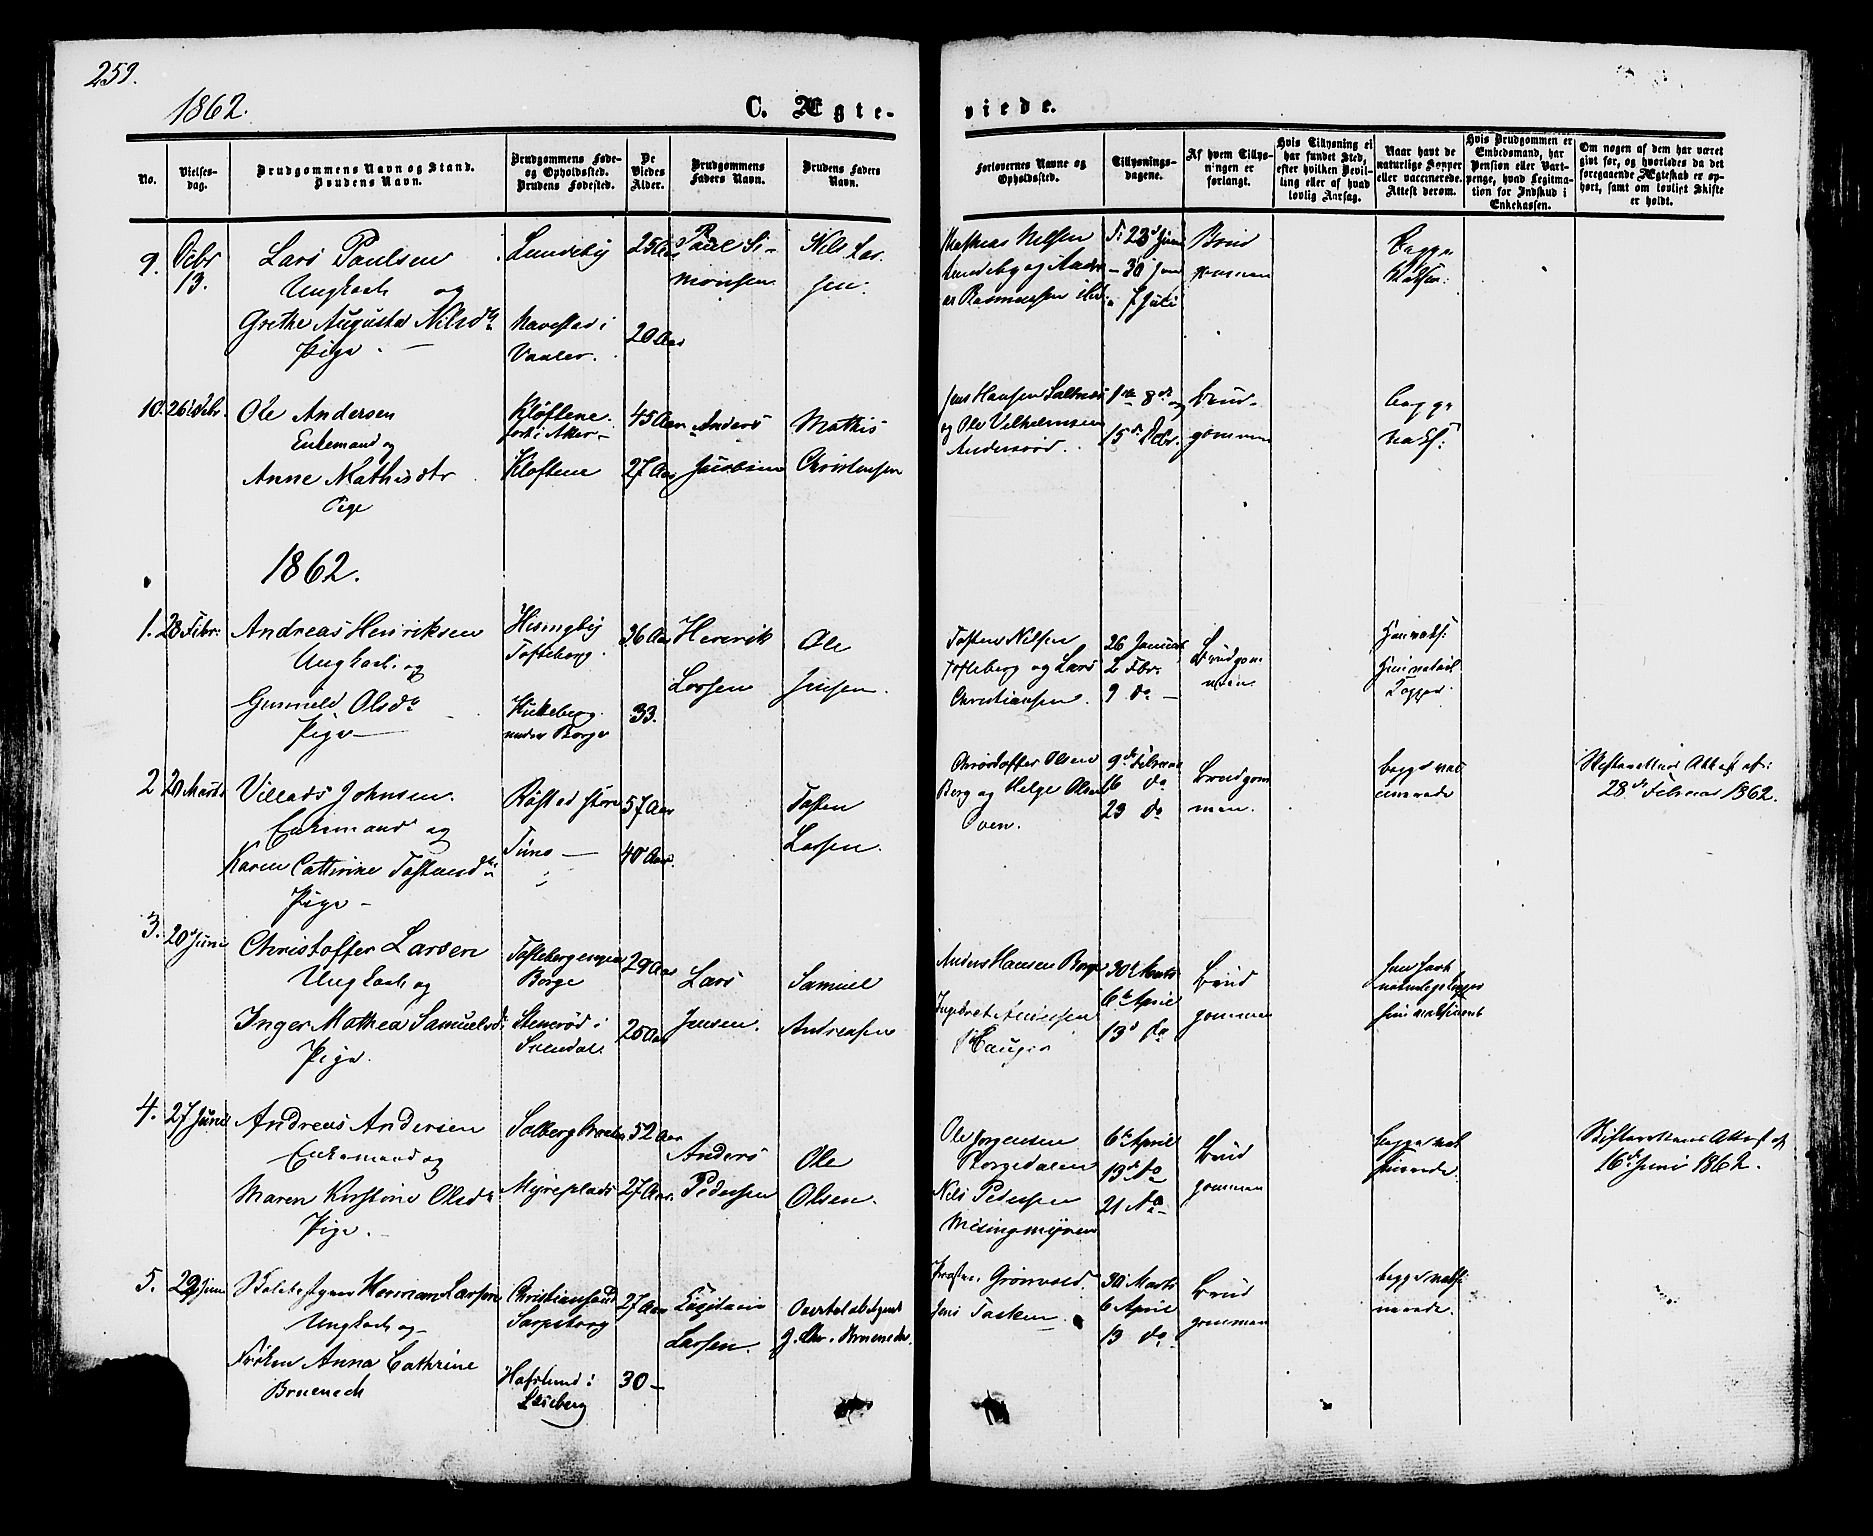 259.
1862.
C. Ægte-
viede.
No.
Vielses-
dag.
Brudgommens Navn og Stand.
Brudens Navn.
Brudgommens Føde-
og Opholdssted.
Brudens Fødested.
De
Viedes
Alder.
Brudgommens
Faders Navn.
Brudens Faders
Navn.
Forlovernes Navne og
Opholdssted.
Tillysnings-
dagene.
Af hvem Tillys-
ningen er
forlangt.
Hvis Tillysning ei
har fundet Sted,
efter hvilken Bevil-
ling eller af hvad
lovlig Aarsag.
Naar havt de
naturlige Kopper
eller vaccinerede.
Attest derom.
Hvis Brudgommen er
Embedsmand, har
Pension eller Vart-
penge, hvad Legitima-
tion for Indskud i
Enkekassen.
Om nogen af dem har været
gift før, og hvorledes da det
foregaaende Ægteskab er op-
hørt, samt om lovligt Skifte
er holdt.
9.
13.
Lars Paulsen
Ungkarl og
Grethe Augusta Nilsdtr
Pige
Lundeby
Navestad i
Vaaler.
25 Aar
20 Aar
Paul Si-
monsen
Nils Lar-
sen.
Mathias Nilsen
Lundeby og
Rasmussen
30 Juni
7 Juli
Brud
gommen
Begge
10.
Ole Andersen
Enkemand og
Anne Mathisdtr
Pige
Kløftene
født i Aker
Kløftene
45 Aar
27 Aar
Anders
Mathis
Christensen
Jens Hansen
og Ole Vilhelmsen
1ste 8de og
15de Debr.
Brud-
gommen
begge
vaks:
1862.
1.
28 Febr:
Andreas Henriksen
Ungkarl og
Gunnild Olsdr
Pige
Tofteberg.
Kirkeberg
under Borge
36 Aar
33.
Henrik
Larsen
Ole
Jensen.
Tosten Nilsen
Tofteberg og Lars
Christiansen.
26 Januar
2 Febr.
9 do
Brudgom
men.
Han vaks:
Hun naturl
Kopper.
2
20 Marts
Villads Johnsen.
Enkemand og
Karen Cathrine Tostensdtr
Pige
Røsted store
Tune
57 Aar
40 Aar.
Tosten
Larsen.
Christoffer Olsen
Berg og Helge Olsen
Oven.
9de Februar
16 do
23 do
Brudgom
men.
begge vak
cinerede
Skifterettens Attest af
28de Februar 1862.
3.
20 Juni
Christoffer Larsen
Ungkarl og
Inger Mathea Samuelsd
Pige.
Toftebergengen
Borge
Stenerød i
29 Aar
25 Aar
Lars
Jensen.
Samuel
Andreasen
Anders Hansen Borge
Hauger
30 Marts
6te April
13d do
Brud
gommen
han havt
naturlige kopper
hun vaksineret
4.
27 Juni
Andreas Andersen
Enkemand og
Maren Kirstine Olsdr
Pige.
Solberg
Myreplads
52 Aar
27 Aar.
Anders
Pedersen
Ole
Olsen.
Ole Jørgensen
Borgedalen
Nils Pedersen
Mesingmyren
6te April
13de do
21 do
Brud
gommen
begge vak
sinerede.
Skifterettens Attest af
16de Juni 1862.
5.
29 Juni
Herman Larsen
Ungkarl og
Frøken Anna Cathrine
Bruenech
Christiansand
Sarpsborg
Hafslund i
27 Aar
30
Larsen.
J. Chr. Bruenech.
Grønvold.
Jens Tasken
30 Marts
6 April
13 do
Brud
gommen
begge vaksi
nerede.